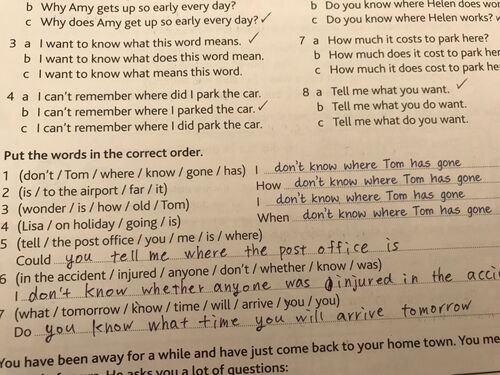 b Why Amy gets up so early every day?
c Why does Amy get up so early every day? ✓
3 a I want to know what this word means. ✓
b I want to know what does this word mean.
c I want to know what means this word.
4 a I can't remember where did I park the car.
b I can't remember where I parked the car. ✓
c I can't remember where I did park the car.
b Do you know where Helen does
c Do you know where Helen works? ✓
7 a How much it costs to park here?
b How much does it cost to park
c How much it does cost to park
8 a Tell me what you want. ✓
b Tell me what you do want.
c Tell me what do you want.
Put the words in the correct order.
1 (don't / Tom / where / know / gone / has) I don't know where Tom has gone
2 (is / to the airport / far / it) How don't know where Tom has gone
3 (wonder / is / how / old / Tom) I don't know where Tom has gone
4 (Lisa / on holiday / going / is) When don't know where Tom has gone
5 (tell / the post office / you / me / is / where)
Could you tell me where the post office is
6 (in the accident / injured / anyone / don't / whether / know / was)
I don't know whether anyone was injured in the
7 (what / tomorrow / know / time / will / arrive / you / you)
Do you know what time you will arrive tomorrow
You have been away for a while and have just come back to your home town. You
He asks you a lot of questions: